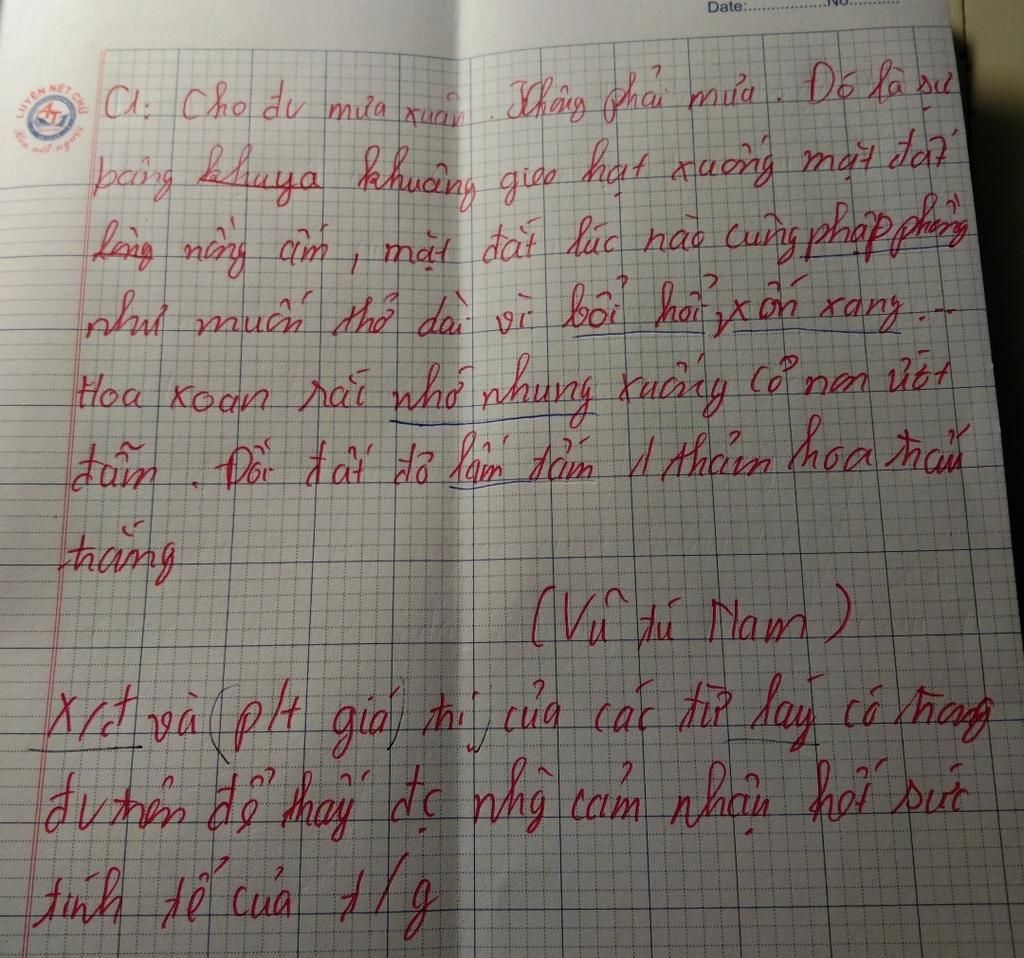 Date:..................No...........
LUYỆN NÉT CHỮ
Rèn nết người
C1: Cho đv mưa xuân. Không phải mưa. Đó là sự
bâng khuya khuâng gieo hạt xuống mặt đất
lòng nóng ấm, mặt đất lúc nào cũng phập phồng
như muốn thở dài vì bổi hổi, xốn xang...
Hoa xoan rắc nhớ nhung xuống cỏ non ướt
đẫm. Đồi đất đỏ lấm tấm 1 thảm hoa trẩu
trắng
(Vũ Tú Nam)
X/đ và (p/t giá) trị của các từ láy có trong
đv trên để thấy đc nhg cảm nhận hết sức
tinh tế của t/g